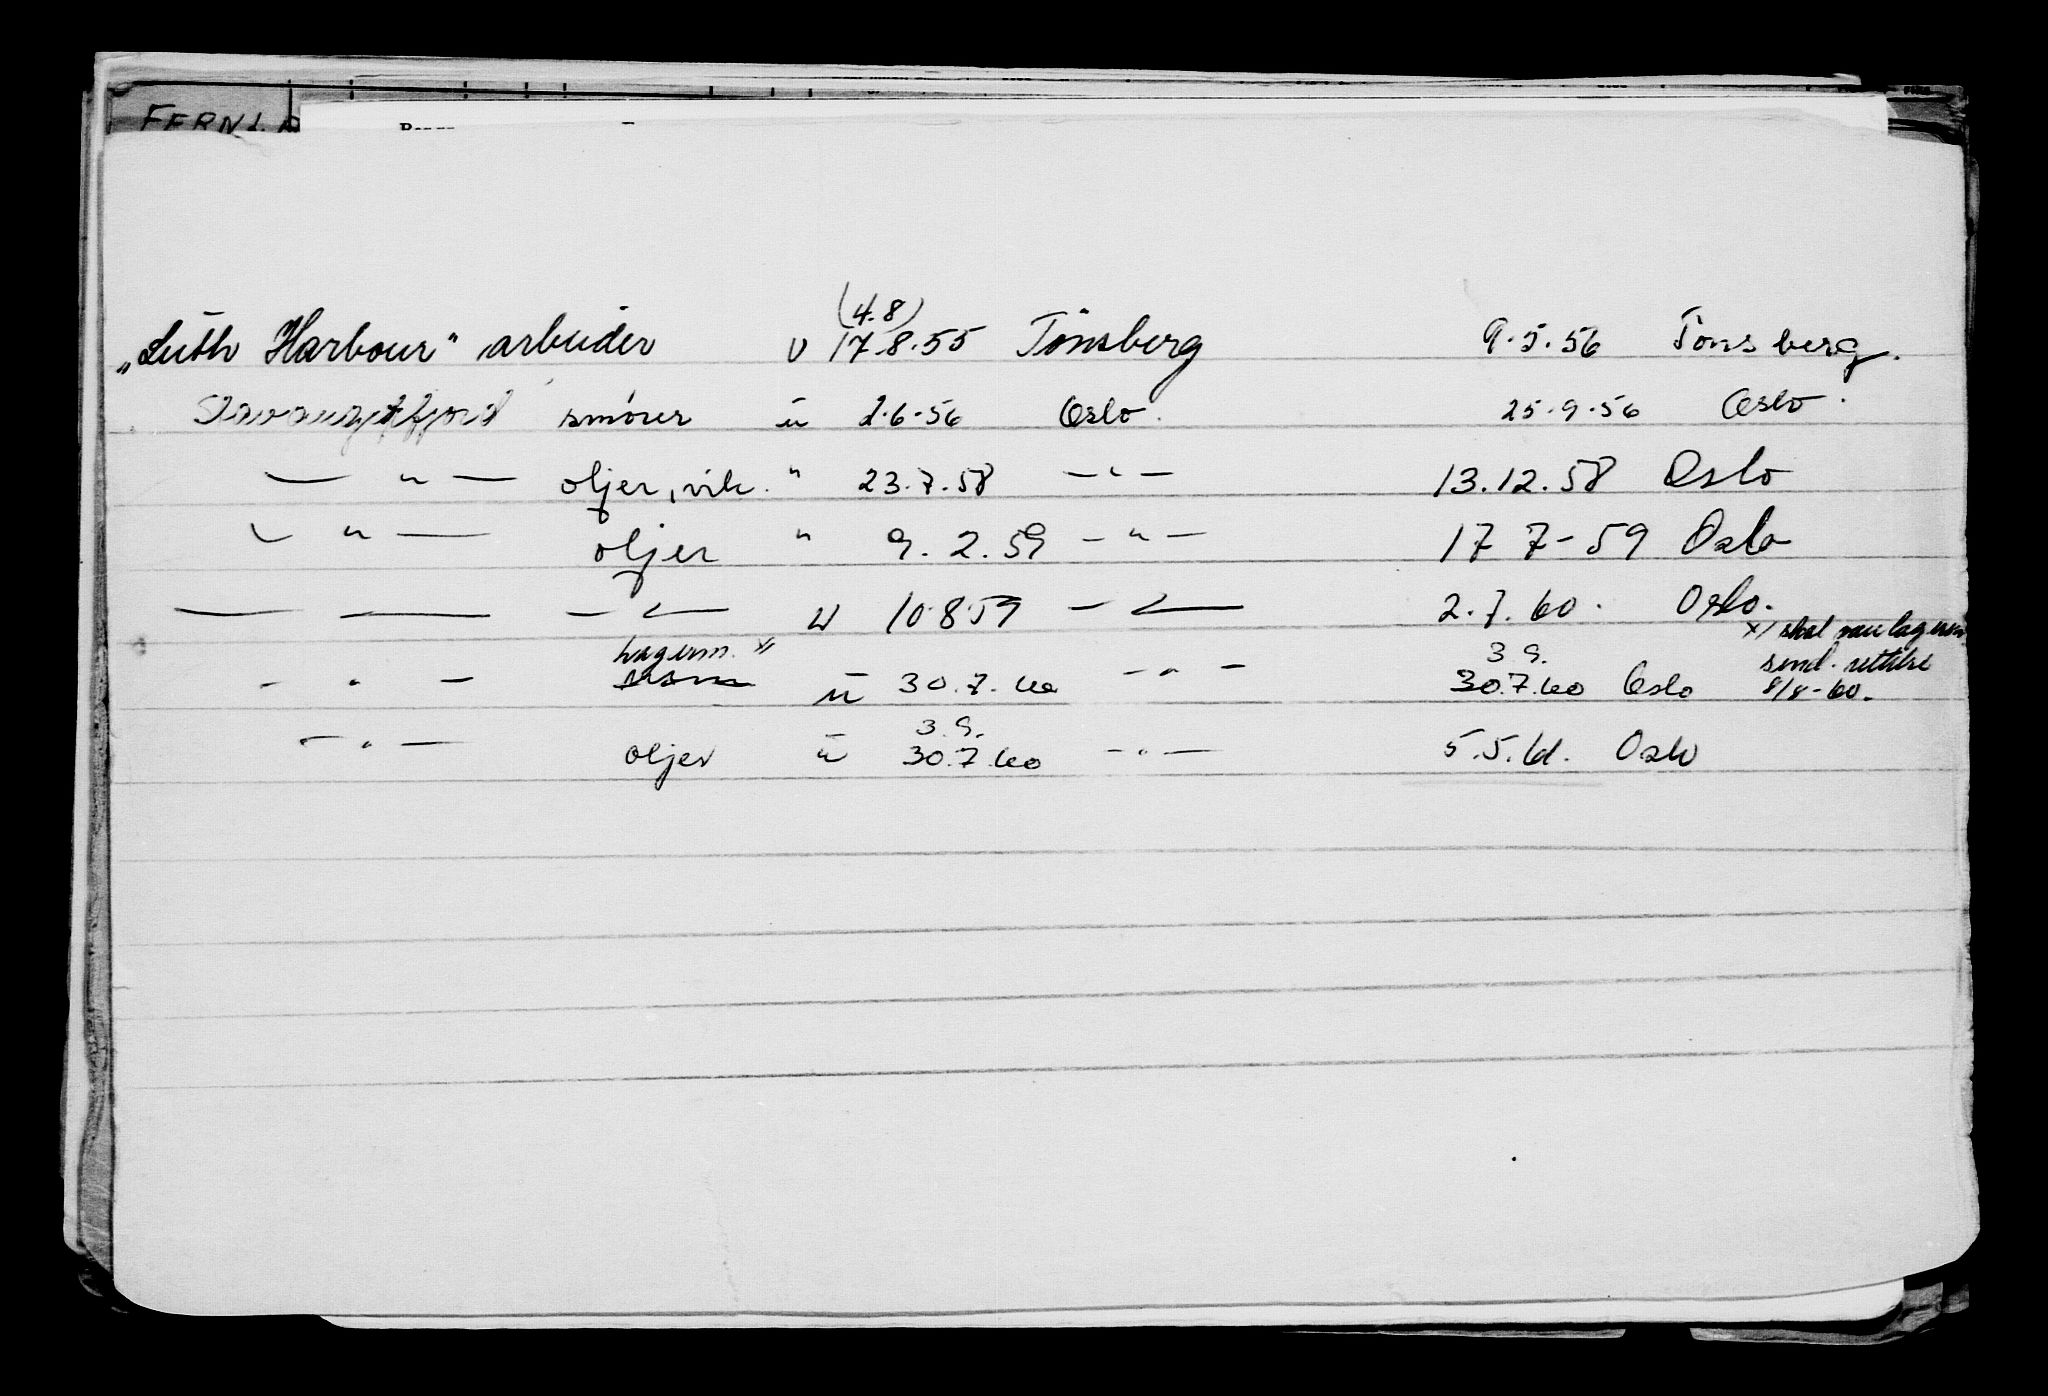 FERNL
(4.8)
„Leith Harbour" arbeider u 17.8.55 Tönsberg 9.5.56 Tönsberg.
Stavangerfjord smörer u 2.6.56 Oslo. 25.9.56 Oslo.
— " — oljer, vik. " 23.7.58 — " — 13.12.58 Oslo
— " — oljer " 9.2.59 — " — 17 7-59 Oslo
— — — — u 10.8.59 — — 2.7.60. Oslo.
lagerm. x/ 3.9. x/ skal være lagerm
- " - u 30.7.60 - " - 30.7.60 Oslo 8/8-60.
3.9.
- " - oljer u 30.7.60 - " - 5.5.61. Oslo